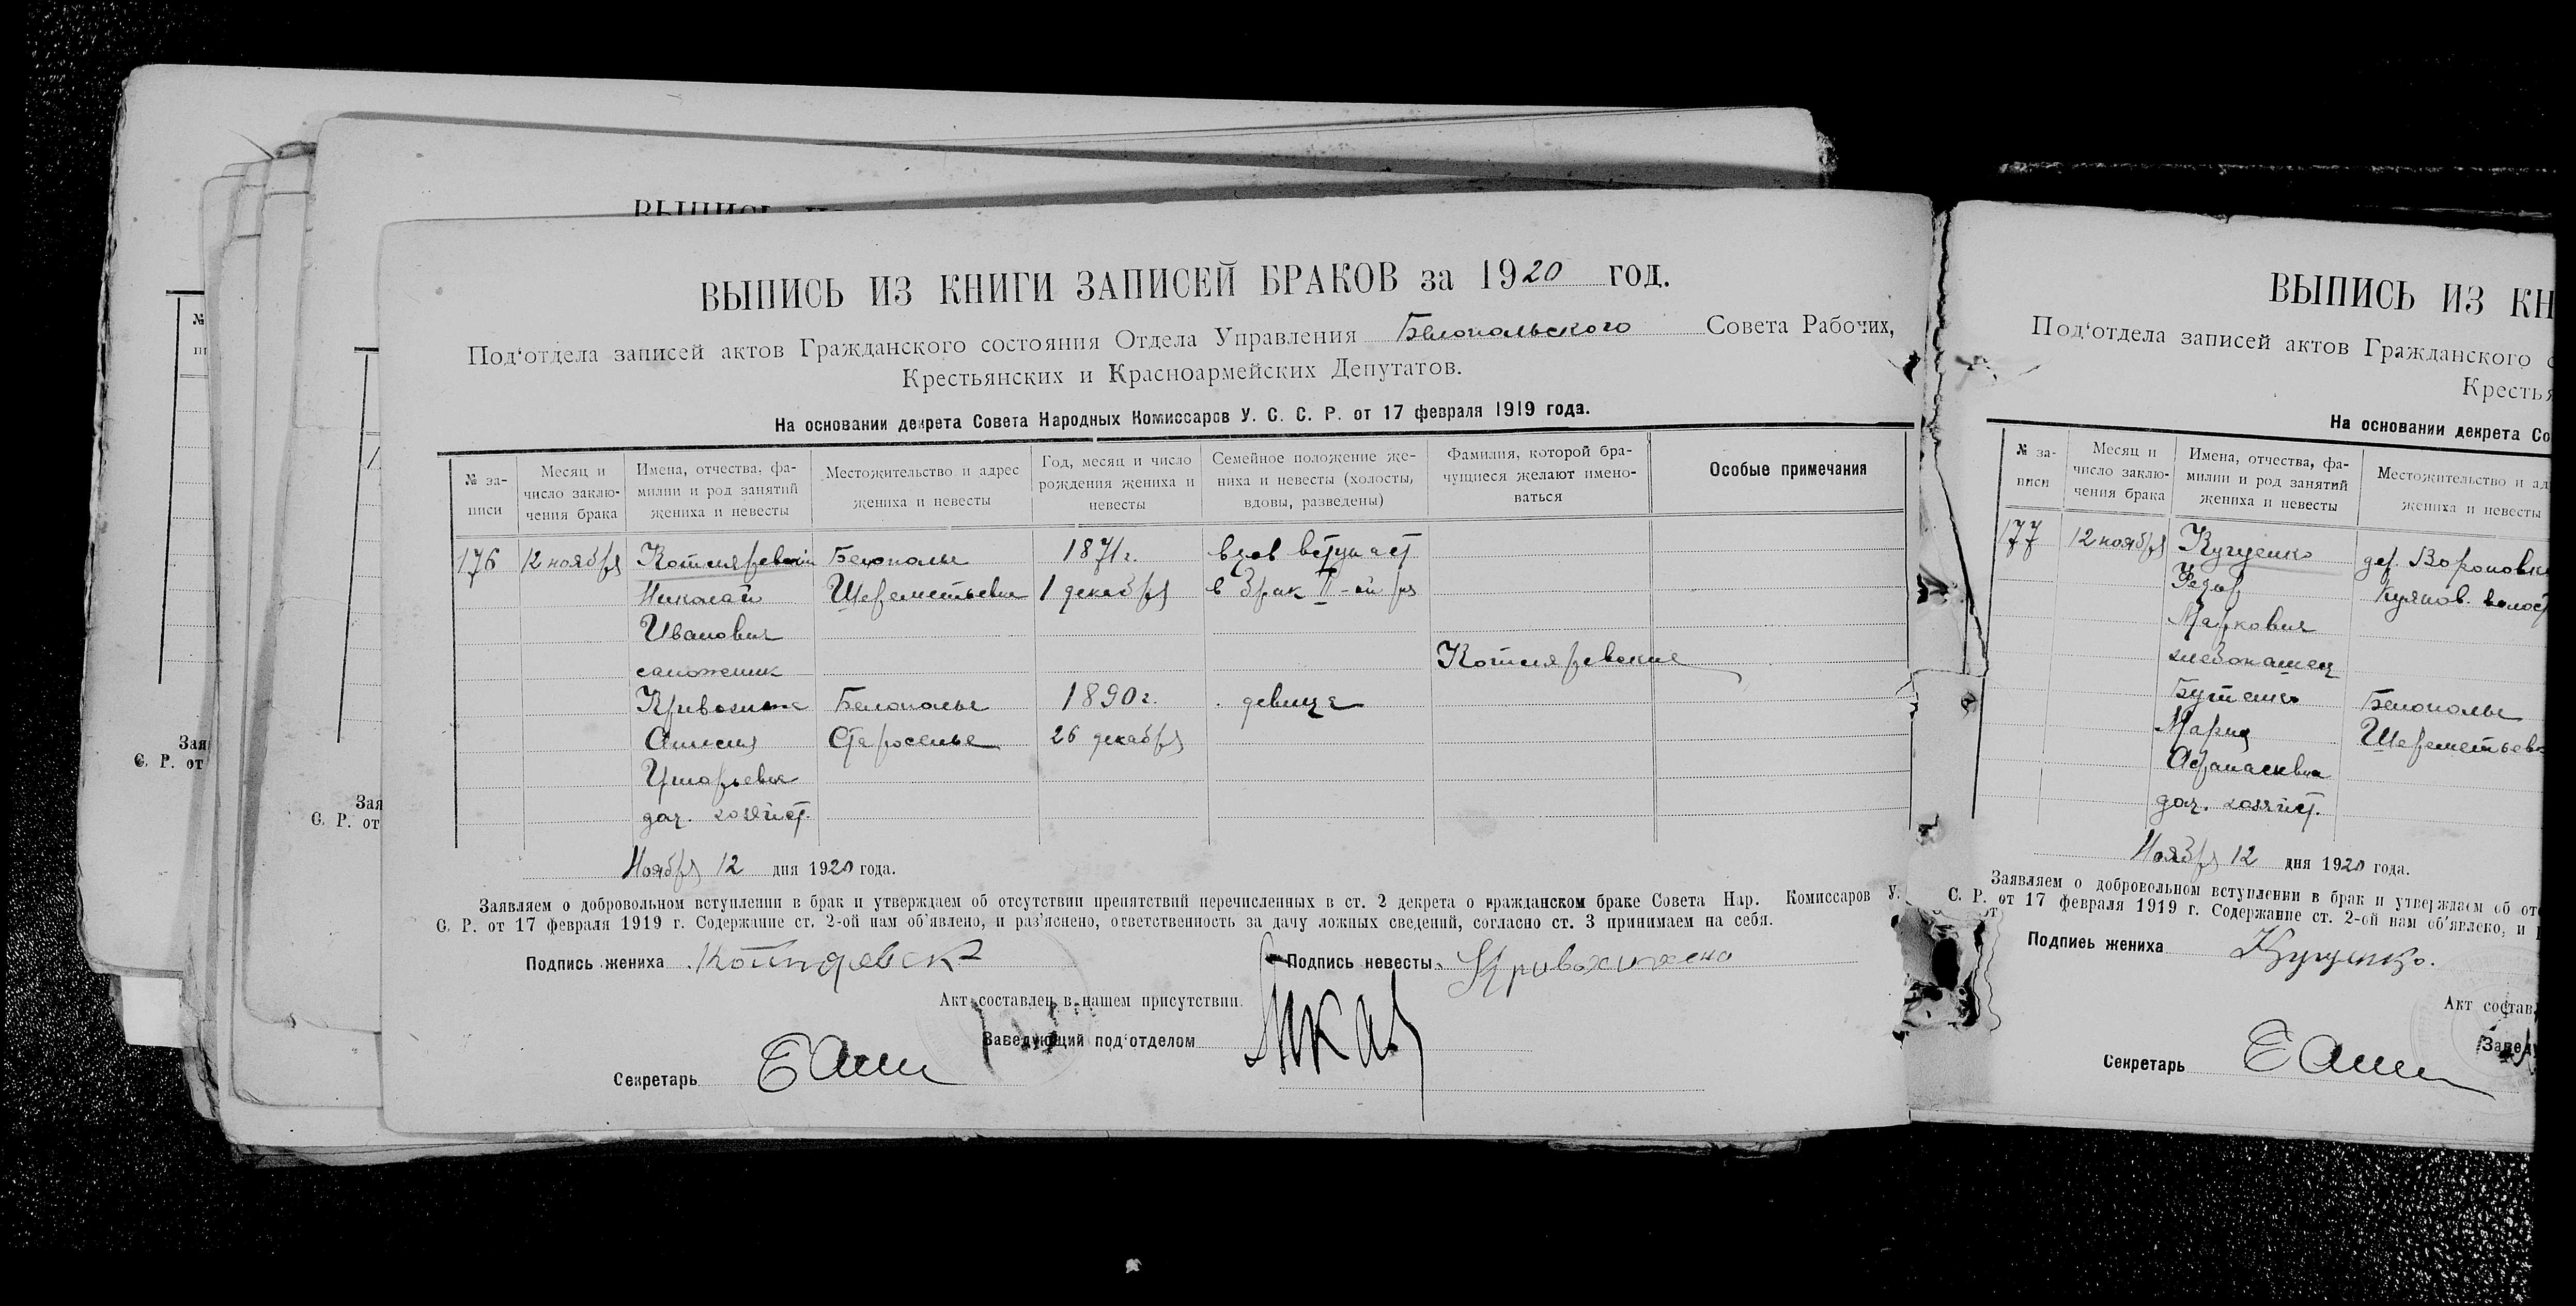 ВЫПИСЬ ИЗ КНИГИ ЗАПИСЕЙ БРАКОВ за 1920 год.
Под‘отдела записей актов Гражданского состояния Отдела Управления Белопольского Совета Рабочих,
Крестьянских и Красноармейских Депутатов.
На основании декрета Совета Народных Комиссаров У. С. С. Р. от 17 февраля 1919 года.
№ за-
писи
Месяц и
число заклю-
чения брака
Имена, отчества, фа-
милии и род занятий
жениха и невесты
Местожительство и адрес
жениха и невесты
Год, месяц и число
рождения жениха и
невесты
Семейное положение же-
ниха и невесты (холосты,
вдовы, разведены)
Фамилия, которой бра-
чущиеся желают имено-
ваться
Особые примечания
176 12 ноября Котляревский Белополье 1871 г. вдов вступает
Николай Шереметьевка 1 декабря в брак II-ой раз
Иванович
сапожник Котляревские
Белополье 1890 г. девица
Анисия Староселье 26 декабря
Григорьевна
дом. хозяйст.
Ноября 12 дня 1920 года.
Заявляем о добровольном вступлении в брак и утверждаем об отсутствии препятствий перечисленных в ст. 2 декрета о гражданском браке Совета Нар. Комиссаров У.
С. Р. от 17 февраля 1919 г. Содержание ст. 2-ой нам об‘явлено, и раз‘яснено, ответственность за дачу ложных сведений, согласно ст. 3 принимаем на себя.
Подпись жениха
Подпись невесты
Акт составлен в нашем присутствии.
Заведующий под‘отделом
Секретарь
ВЫПИСЬ ИЗ КН
Под‘отдела записей актов Гражданского с
Крестья
На основании декрета Со
№ за-
писи
Месяц и
число заклю-
чения брака
Имена, отчества, фа-
милии и род занятий
жениха и невесты
Местожительство и ад
жениха и невесты
177 12 ноября Куценко дер. Вороновка
Федор
Маркович
хлебопашец
Бутенко Белополье
Мария Шереметьевка
Афанасиевна
дом. хозяйст.
Ноября 12 дня 1920 года.
Заявляем о добровольном вступлении в брак и утверждаем об отс
С. Р. от 17 февраля 1919 г. Содержание ст. 2-ой нам об‘явлено, и
Подпись жениха Куценко.
Акт состав
Завед
Секретарь
ВЫПИСЬ
№
Зая
С. Р. от
Зая
С. Р. от